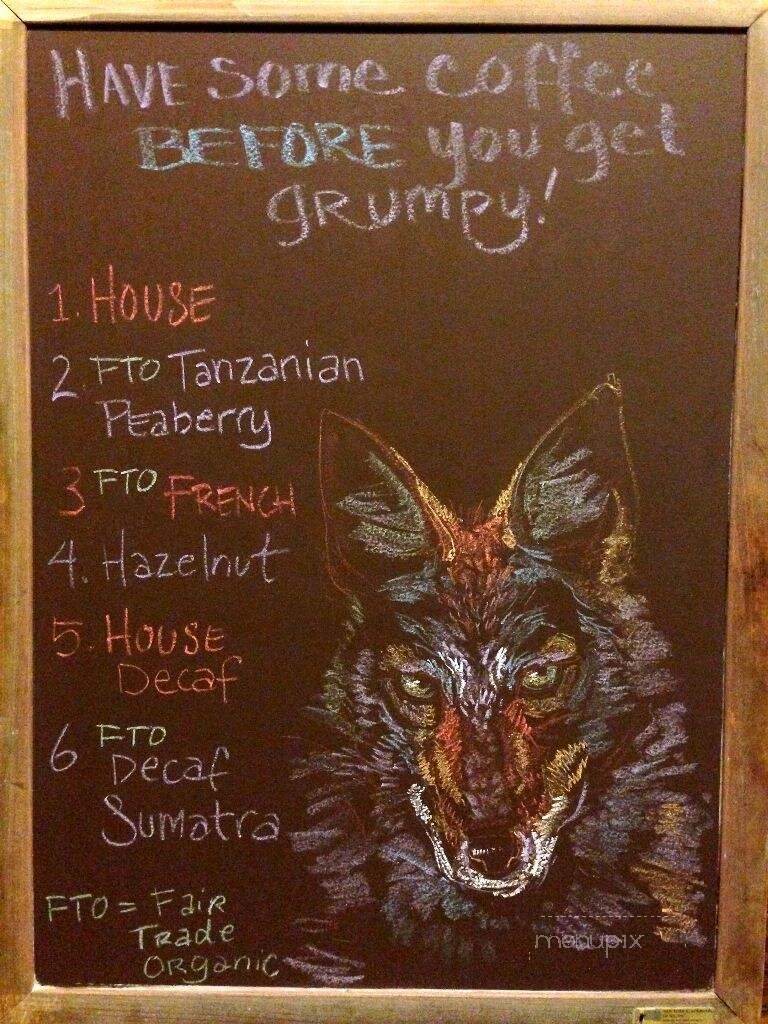 HAVE Some coffee
BEFORE you get
grumpy!
1. HOUSE
2. FTO Tanzanian
PEaberry
3 FTO FRENCH
4. Hazelnut
5. HOUSE
Decaf
6 FTO
Decaf
Sumatra
FTO = Fair
Trade
Organic
menupix